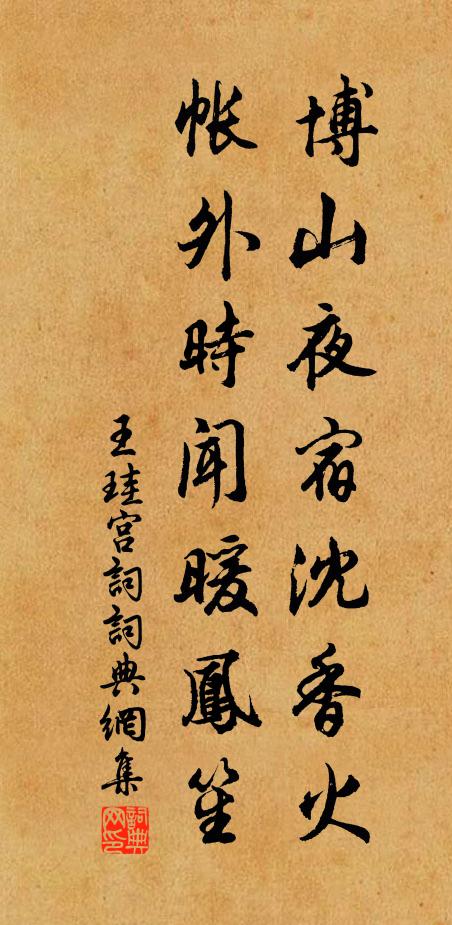 博山夜宿沈香火
帳外時聞暖鳳笙
王珪宮詞詞典網集
詞典網印